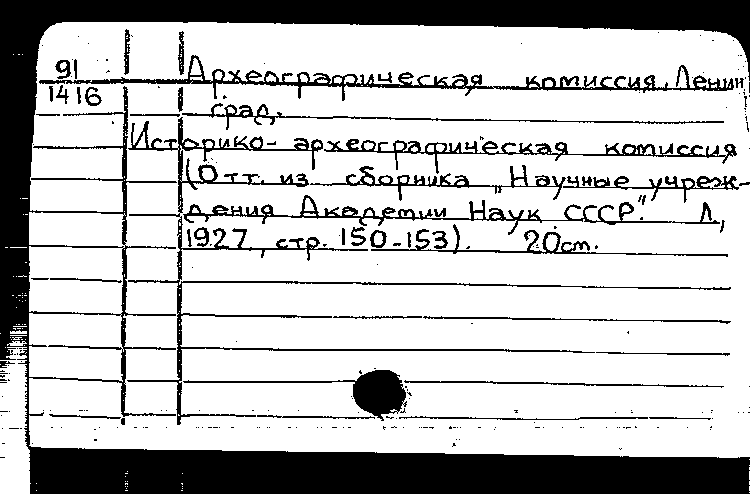 91
1416
Археографическая комиссия, Ленин
град.
Историко-археографическая комиссия
(Отт. из сборника „Научные учреж-
дения Академии Наук СССР". Л.,
1927, стр. 150-153). 20 cm.